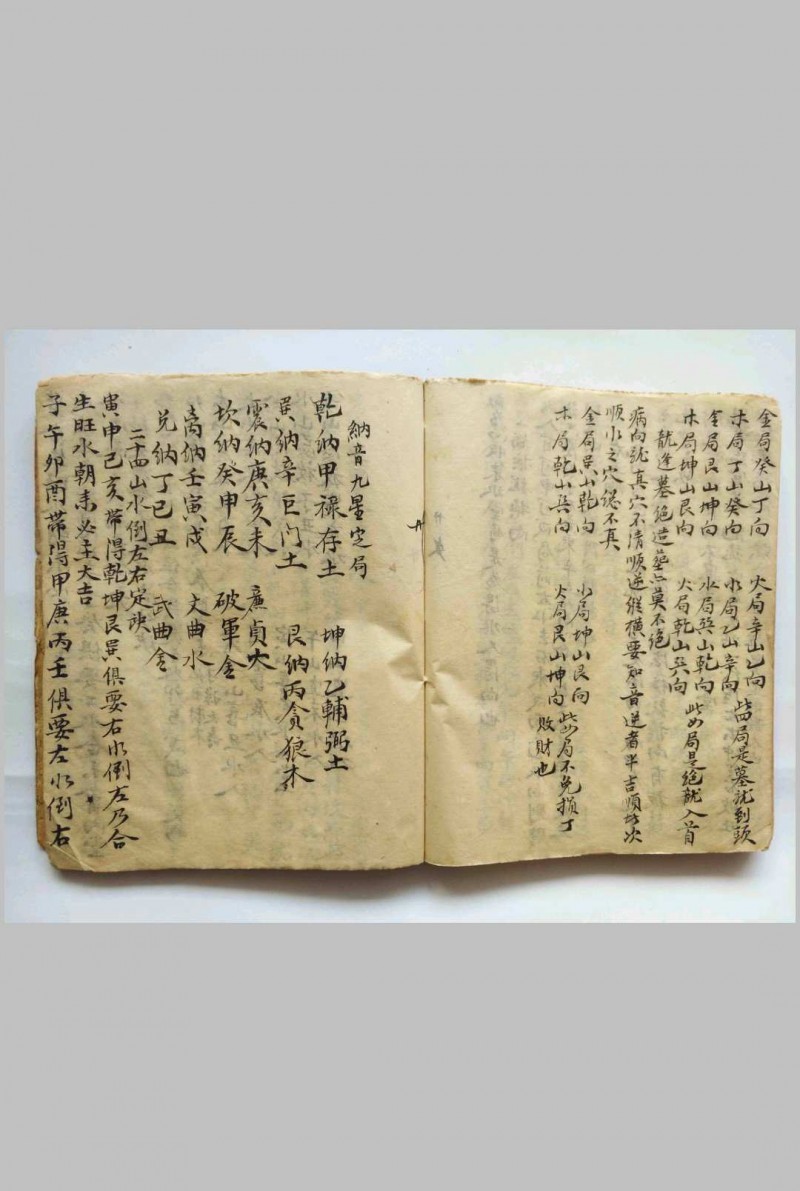 金局癸山丁向　火局辛山乙向
木局丁山癸向　水局乙山辛向　此四局是墓龍到頭
金局艮山坤向　水局巽山乾向
木局坤山艮向　火局乾山巽向　此四局是絕龍入首
龍逢墓絕造塋亡莫不絕
病向龍真穴不清順逆縱橫要知音逆者半吉順者次
順水之穴總不真
金局巽山乾向　水局坤山艮向
木局乾山巽向　火局艮山坤向　此局不免損丁
敗財也
納音九星定局
乾納甲祿存土　坤納乙輔弼土
巽納辛巨门土　艮納丙貪狼木
震納庚亥未　廉貞火
坎納癸申辰　破軍金
离納壬寅戌　文曲水
兑納丁巳丑　武曲金
二十四山水倒左右定訣
寅申巳亥带得乾坤艮巽俱要右水倒左乃合
生旺水朝来必主大吉
子午卯酉带得甲庚丙壬俱要左水倒右